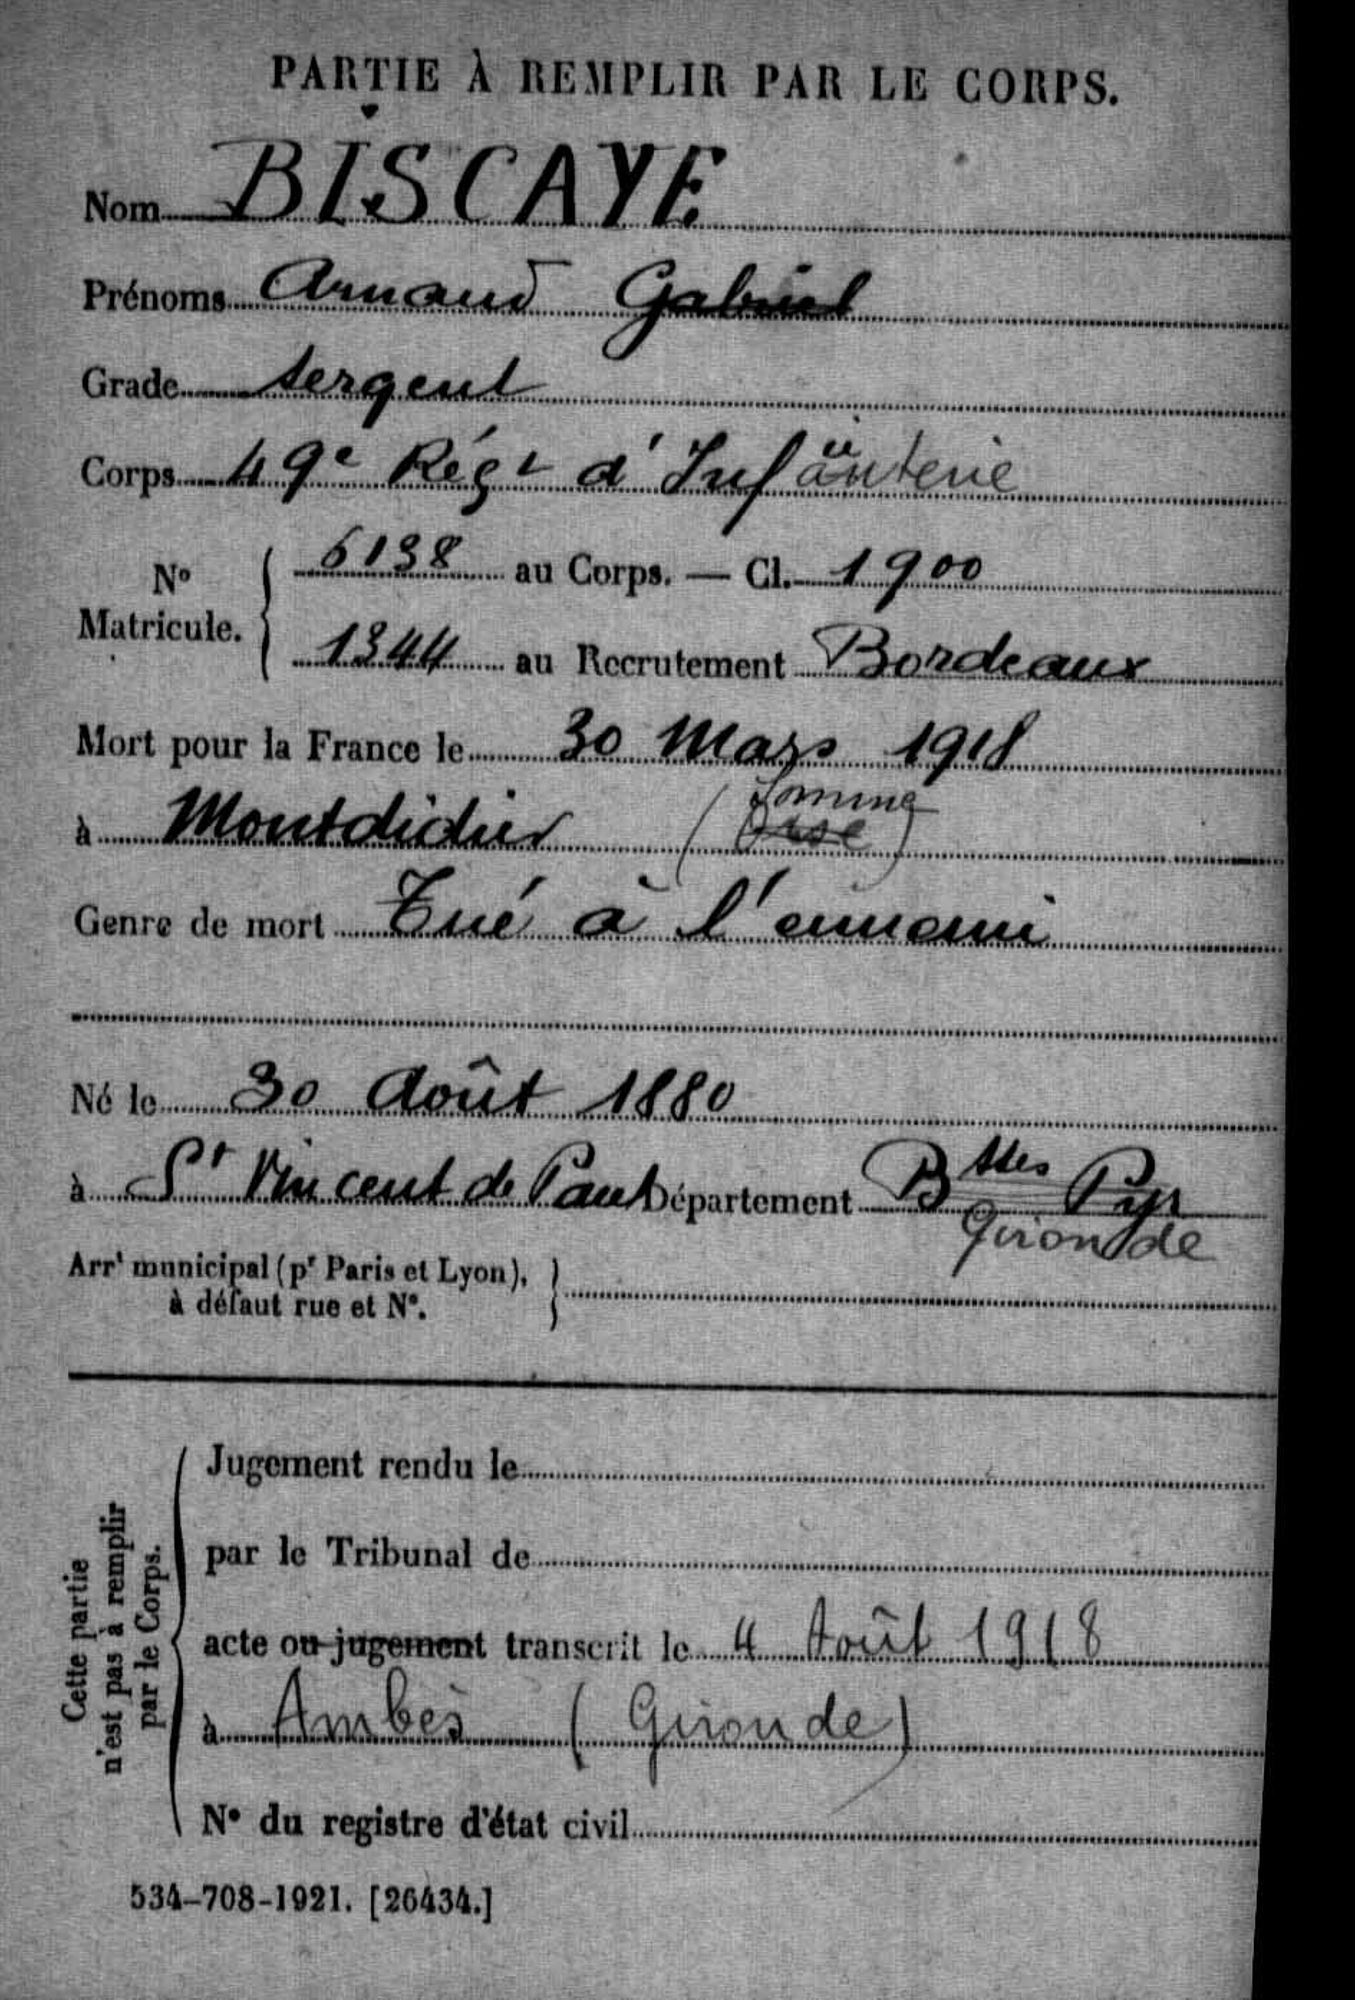 PARTIE À REMPLIR PAR LE CORPS.
Nom BISCAYE
Prénoms Arnaud Gabriel
Grade Sergent
Corps 49e Régt d'Infanterie
No Matricule. 6138 au Corps. — Cl. 1900
1344 au Recrutement Bordeaux
Mort pour la France le 30 Mars 1918
Somme
à Montdidier (Oise)
Genre de mort Tué à l'ennemi
Né le 30 Août 1880
à St Vincent de Paul Département Bsses Pyr
Gironde
Arrt municipal (pr Paris et Lyon),
à défaut rue et No.
Cette partie
n'est pas à remplir
par le Corps.
Jugement rendu le
par le Tribunal de
acte ou jugement transcrit le 4 Août 1918
à Ambès (Gironde)
No du registre d'état civil
534-708-1921. [26434.]